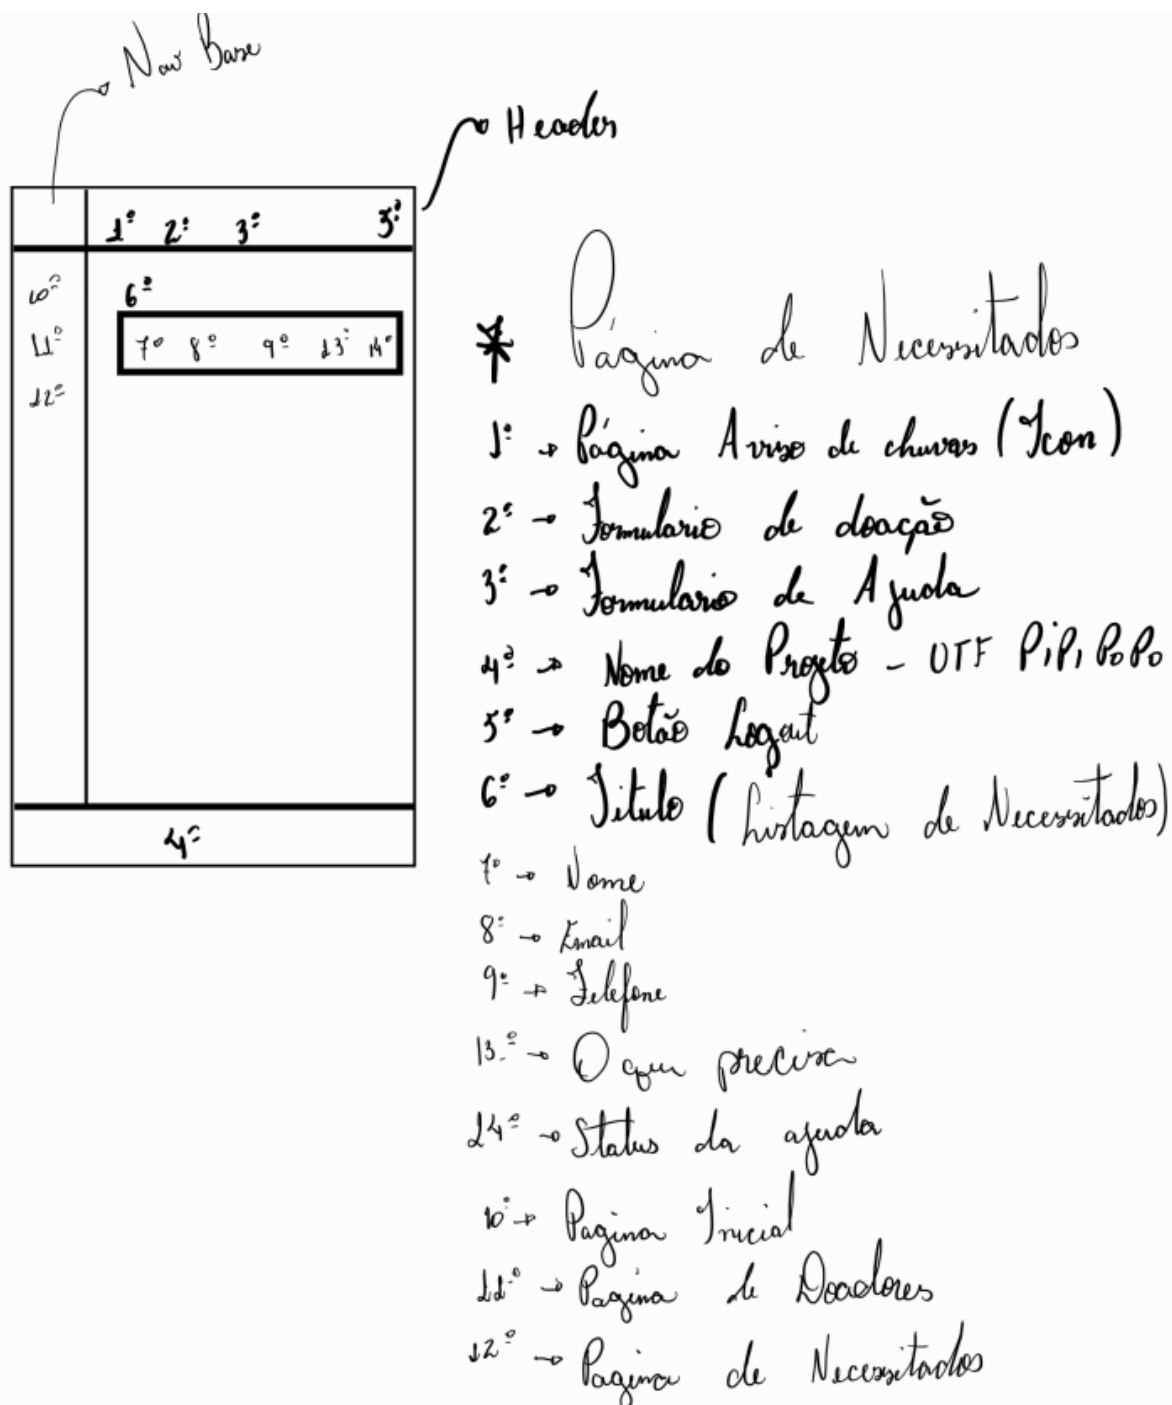 Nav Base
Header
1º 2º 3º 5º
10º 6º
11º 7º 8º 9º 13º 14º
12º
4º
* Página de Necessitados
1º → Página Aviso de chuvas (Icon)
2º → Formulario de doação
3º → Formulario de Ajuda
4º → Nome do Projeto - UTF PiPi PoPo
5º → Botão Logout
6º → Titulo (Listagem de Necessitados)
7º → Nome
8º → Email
9º → Telefone
13.º → O que precisa
14º → Status da ajuda
10º → Pagina Inicial
11º → Pagina de Doadores
12º → Pagina de Necessitados